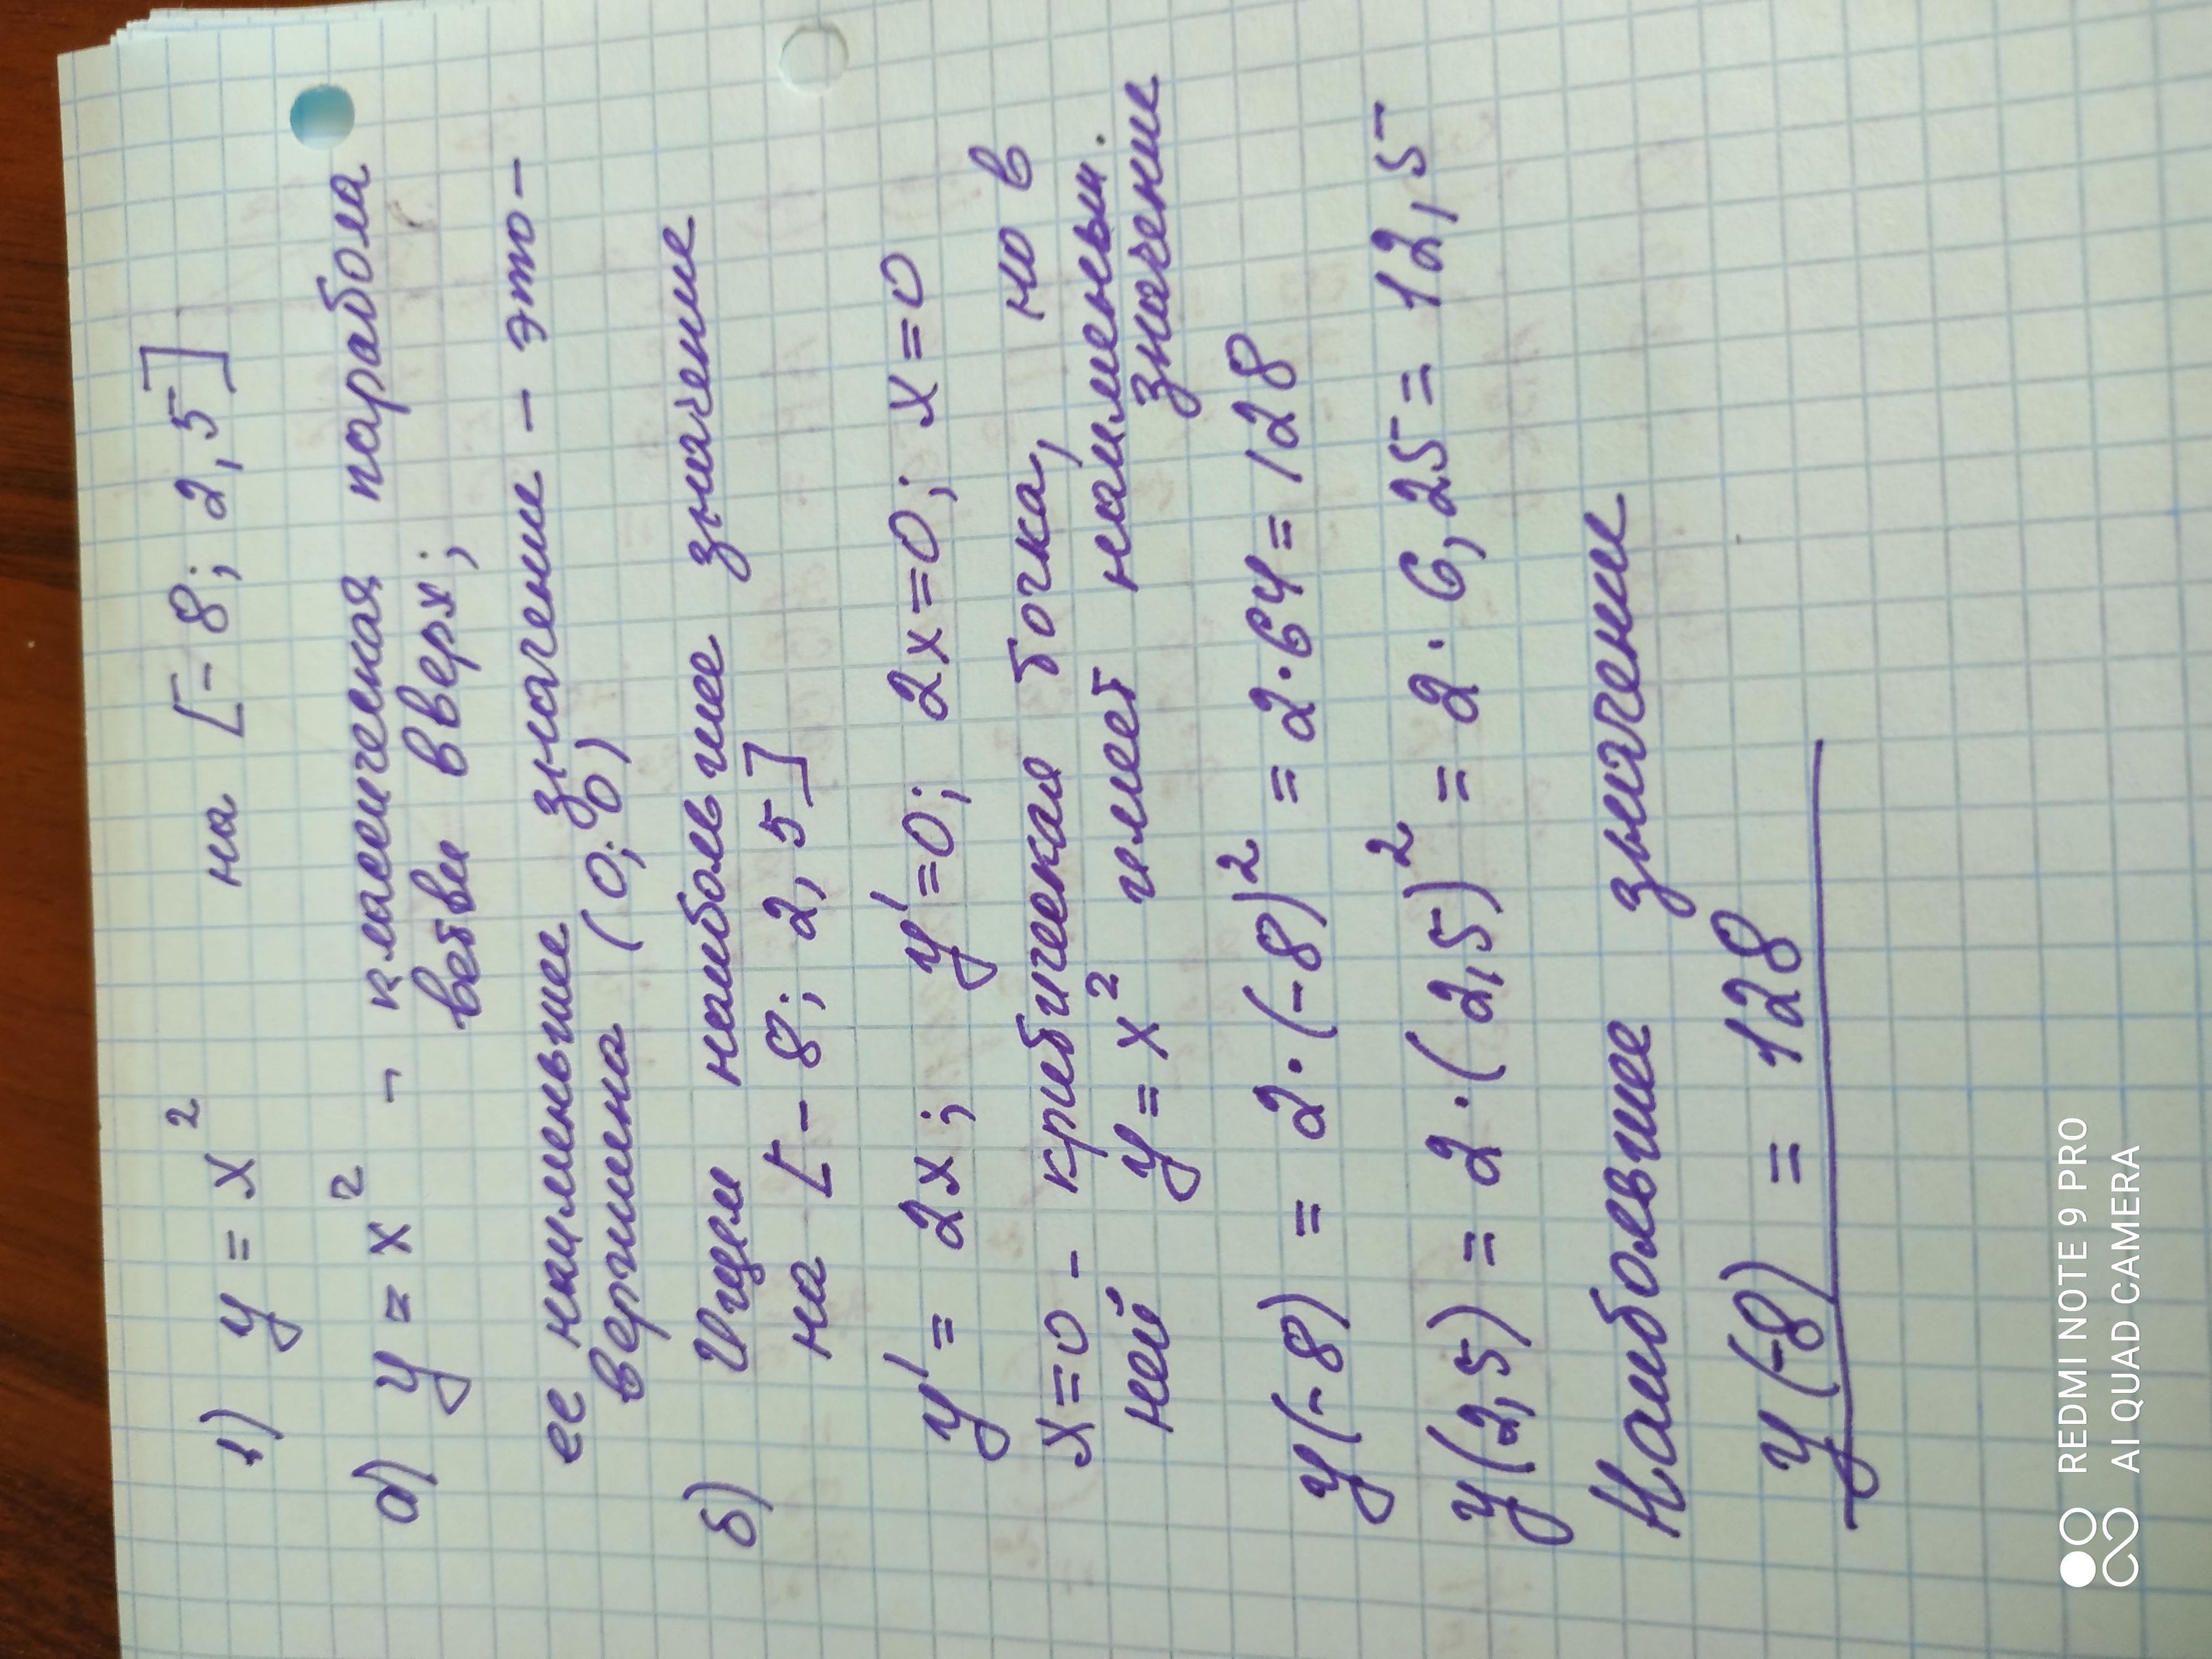 1) y = x² на [-8; 2,5]
а) y = x² - классическая парабола
ветви вверх;
ее наименьшее значение - это -
вершина (0; 0)
б) Ищем наибольшее значение
на [-8; 2,5]
y' = 2x; y' = 0; 2x = 0; x = 0
x = 0 - критическая точка, но в
ней y = x² имеет наименьш.
значение
y(-8) = 2·(-8)² = 2·64 = 128
y(2,5) = 2·(2,5)² = 2·6,25 = 12,5
Наибольшее значение
y(-8) = 128
REDMI NOTE 9 PRO
AI QUAD CAMERA